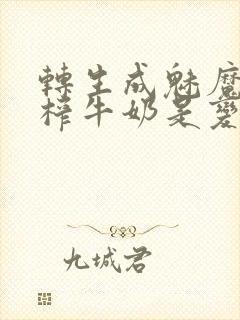 轉生成魅魔
榨牛奶是變
九城君